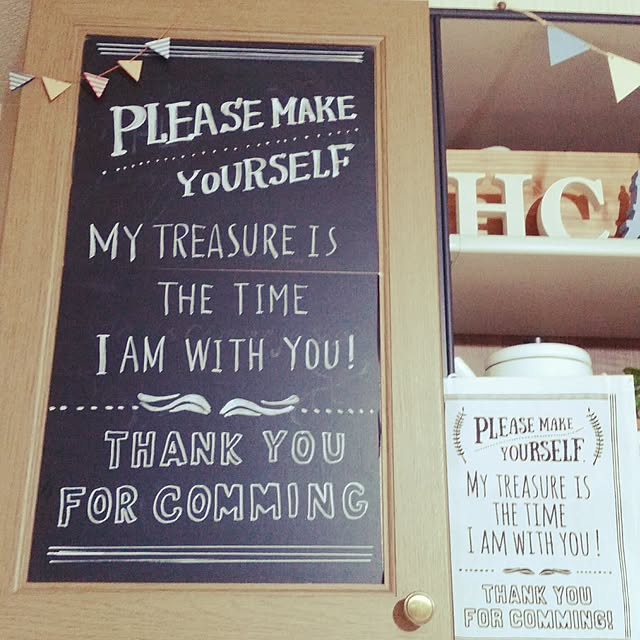 PLEASE MAKE
YOURSELF
MY TREASURE IS
THE TIME
I AM WITH YOU!
THANK YOU
FOR COMMING
HC
PLEASE MAKE
YOURSELF
MY TREASURE IS
THE TIME
I AM WITH YOU!
THANK YOU
FOR COMMING!